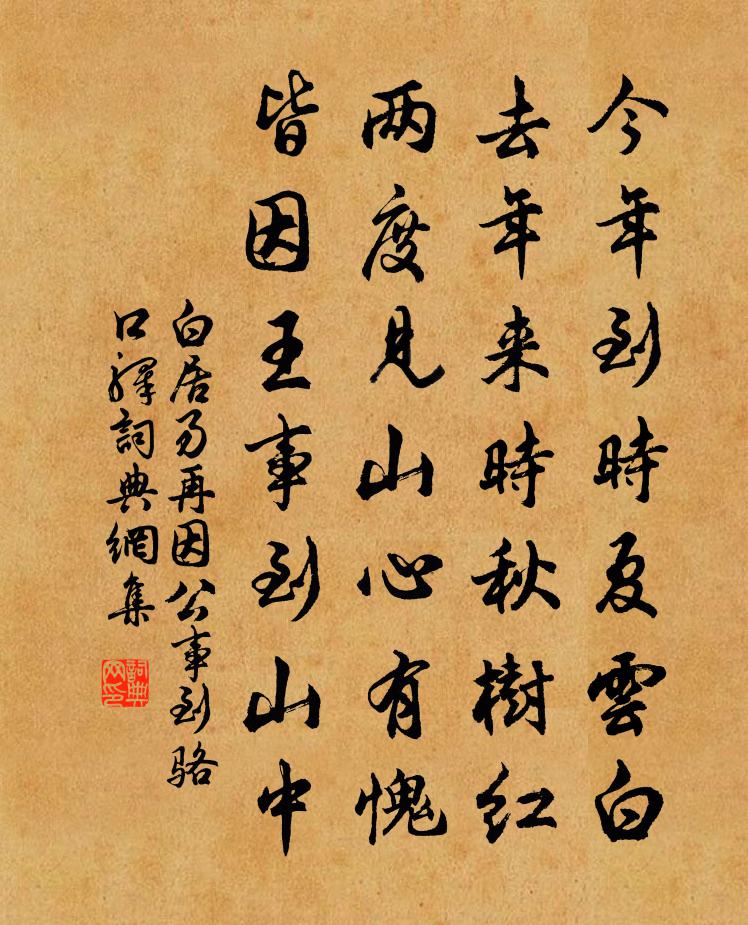 今年到時夏雲白
去年来時秋樹紅
两度見山心有愧
皆因王事到山中
白居易再因公事到骆
口釋詞典網集
詞典
网印